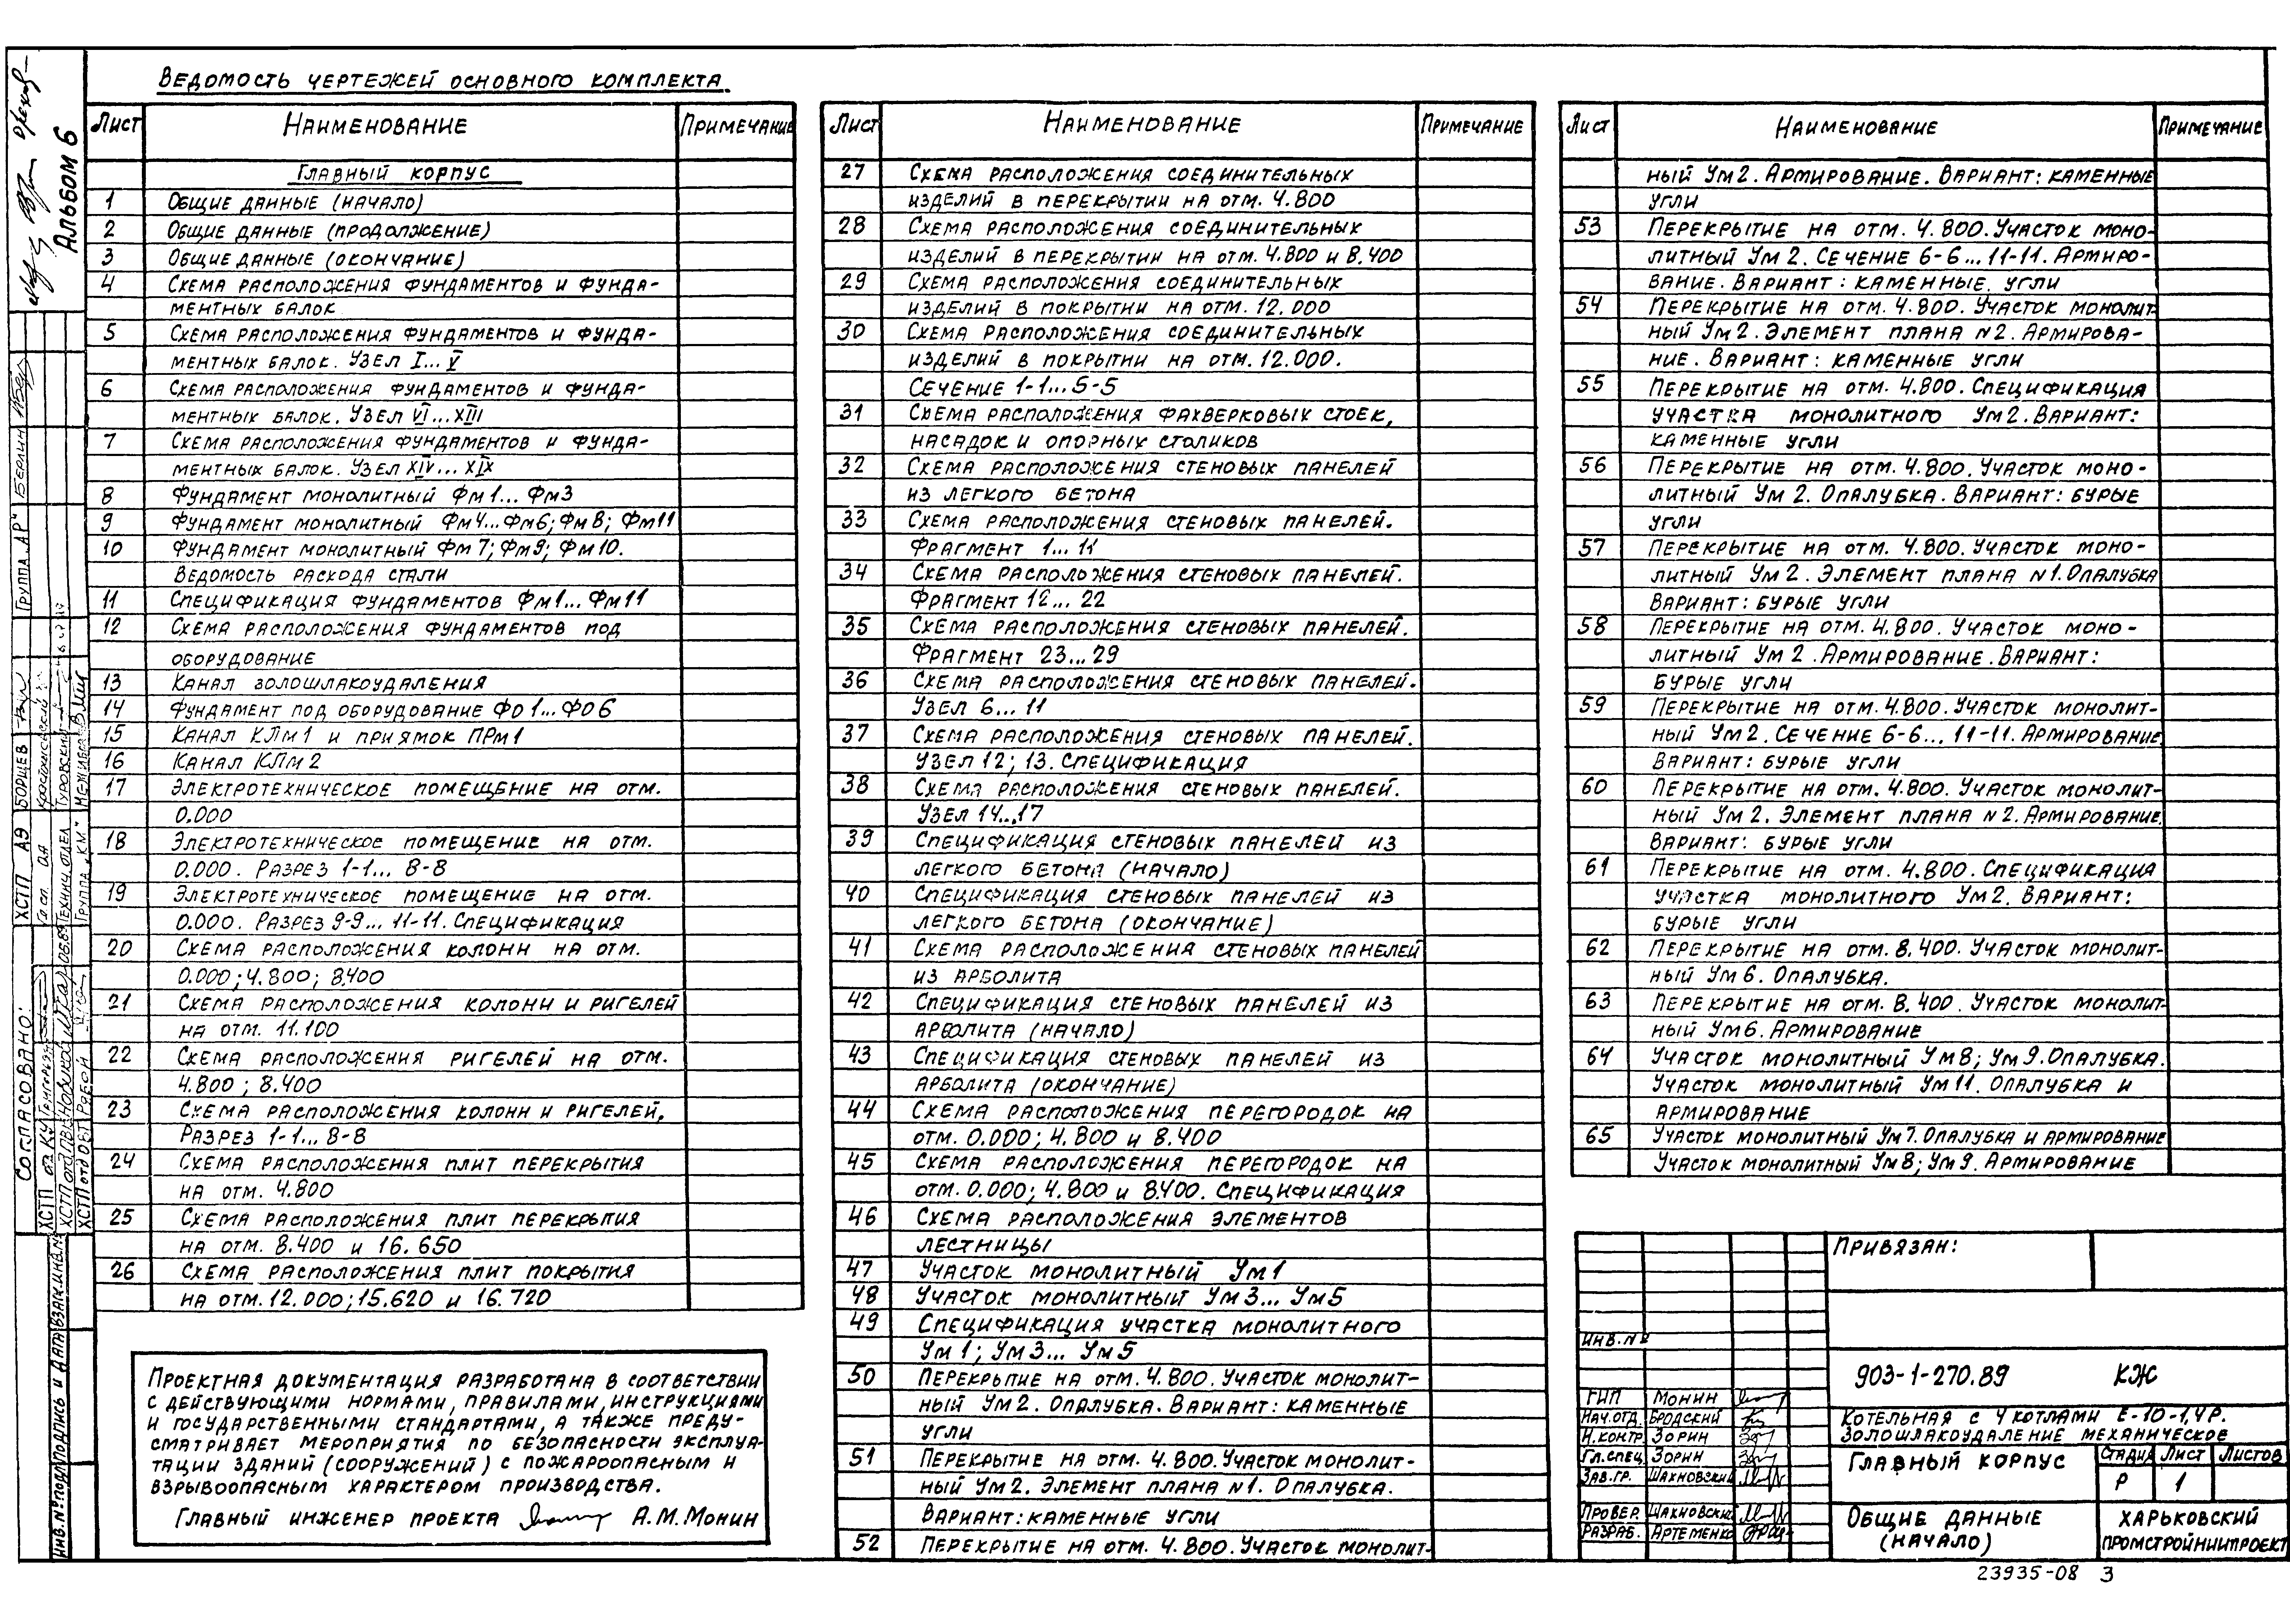 Ведомость чертежей основного комплекта
Альбом 6
Лист Наименование Примечание
Главный корпус
1 Общие данные (начало)
2 Общие данные (продолжение)
3 Общие данные (окончание)
4 Схема расположения фундаментов и фунда-
ментных балок
5 Схема расположения фундаментов и фунда-
ментных балок. Узел I...V
6 Схема расположения фундаментов и фунда-
ментных балок. Узел VI...XIII
7 Схема расположения фундаментов и фунда-
ментных балок. Узел XIV...XIX
8 Фундамент монолитный Фм1...Фм3
9 Фундамент монолитный Фм4...Фм6; Фм8; Фм11
10 Фундамент монолитный Фм7; Фм9; Фм10.
Ведомость расхода стали
11 Спецификация фундаментов Фм1...Фм11
12 Схема расположения фундаментов под
оборудование
13 Канал золошлакоудаления
14 Фундамент под оборудование ФО1...ФО6
15 Канал КЛм1 и приямок ПРм1
16 Канал КЛм2
17 Электротехническое помещение на отм.
0.000
18 Электротехническое помещение на отм.
0.000. Разрез 1-1... 8-8
19 Электротехническое помещение на отм.
0.000. Разрез 9-9... 11-11. Спецификация
20 Схема расположения колонн на отм.
0.000; 4.800; 8.400
21 Схема расположения колонн и ригелей
на отм. 11.100
22 Схема расположения ригелей на отм.
4.800; 8.400
23 Схема расположения колонн и ригелей,
Разрез 1-1... 8-8
24 Схема расположения плит перекрытия
на отм. 4.800
25 Схема расположения плит перекрытия
на отм. 8.400 и 16.650
26 Схема расположения плит покрытия
на отм. 12.000; 15.620 и 16.720
Проектная документация разработана в соответствии
с действующими нормами, правилами, инструкциями
и государственными стандартами, а также преду-
сматривает мероприятия по безопасности эксплуа-
тации зданий (сооружений) с пожароопасным и
взрывоопасным характером производства.
Главный инженер проекта А.М.Монин
Лист Наименование Примечание
27 Схема расположения соединительных
изделий в перекрытии на отм. 4.800
28 Схема расположения соединительных
изделий в перекрытии на отм. 4.800 и 8.400
29 Схема расположения соединительных
изделий в покрытии на отм. 12.000
30 Схема расположения соединительных
изделий в покрытии на отм. 12.000.
Сечение 1-1... 5-5
31 Схема расположения фахверковых стоек,
насадок и опорных столиков
32 Схема расположения стеновых панелей
из легкого бетона
33 Схема расположения стеновых панелей.
Фрагмент 1... 11
34 Схема расположения стеновых панелей.
Фрагмент 12... 22
35 Схема расположения стеновых панелей.
Фрагмент 23... 29
36 Схема расположения стеновых панелей.
Узел 6... 11
37 Схема расположения стеновых панелей.
Узел 12; 13. Спецификация
38 Схема расположения стеновых панелей.
Узел 14...17
39 Спецификация стеновых панелей из
легкого бетона (начало)
40 Спецификация стеновых панелей из
легкого бетона (окончание)
41 Схема расположения стеновых панелей
из арболита
42 Спецификация стеновых панелей из
арболита (начало)
43 Спецификация стеновых панелей из
арболита (окончание)
44 Схема расположения перегородок на
отм. 0.000; 4.800 и 8.400
45 Схема расположения перегородок на
отм. 0.000; 4.800 и 8.400. Спецификация
46 Схема расположения элементов
лестницы
47 Участок монолитный Ум1
48 Участок монолитный Ум3... Ум5
49 Спецификация участка монолитного
Ум1; Ум3... Ум5
50 Перекрытие на отм. 4.800. Участок монолит-
ный Ум2. Опалубка. Вариант: каменные
угли
51 Перекрытие на отм. 4.800. Участок монолит-
ный Ум2. Элемент плана N1. Опалубка.
Вариант: каменные угли
52 Перекрытие на отм. 4.800. Участок монолит-
Лист Наименование Примечание
ный Ум2. Армирование. Вариант: каменные
угли
53 Перекрытие на отм. 4.800. Участок моно-
литный Ум2. Сечение 6-6... 11-11. Армиро-
вание. Вариант: каменные угли
54 Перекрытие на отм. 4.800. Участок монолит-
ный Ум2. Элемент плана N2. Армирова-
ние. Вариант: каменные угли
55 Перекрытие на отм. 4.800. Спецификация
участка монолитного Ум2. Вариант:
каменные угли
56 Перекрытие на отм. 4.800. Участок моно-
литный Ум2. Опалубка. Вариант: бурые
угли
57 Перекрытие на отм. 4.800. Участок моно-
литный Ум2. Элемент плана N1. Опалубка
Вариант: бурые угли
58 Перекрытие на отм. 4.800. Участок моно-
литный Ум2. Армирование. Вариант:
бурые угли
59 Перекрытие на отм. 4.800. Участок монолит-
ный Ум2. Сечение 6-6... 11-11. Армирование.
Вариант: бурые угли
60 Перекрытие на отм. 4.800. Участок монолит-
ный Ум2. Элемент плана N2. Армирование.
Вариант: бурые угли
61 Перекрытие на отм. 4.800. Спецификация
участка монолитного Ум2. Вариант:
бурые угли
62 Перекрытие на отм. 8.400. Участок монолит-
ный Ум6. Опалубка.
63 Перекрытие на отм. 8.400. Участок монолит-
ный Ум6. Армирование
64 Участок монолитный Ум8; Ум9. Опалубка.
Участок монолитный Ум11. Опалубка и
армирование
65 Участок монолитный Ум7. Опалубка и армирование
Участок монолитный Ум8; Ум9. Армирование
Привязан:
Инв. №
903-1-270.89 КЖ
ГИП Монин
Нач.отд. Бродский
Н.контр. Зорин
Гл.спец. Зорин
Зав.гр. Шахновский
Провер. Шахновский
Разраб. Артеменко
Котельная с 4 котлами Е-10-1,4Р.
Золошлакоудаление механическое
Главный корпус
Стадия Лист Листов
Р 1
Общие данные
(начало)
Харьковский
Промстройниипроект
23935-08 3
Согласовано:
ХСТП АЭ Борщев
Группа "АР" Берлин
Гл. сп. ОА
Технич. отдел Туровский
Группа "КМ"
ХСТП отд ОВ Рабой
Инв.№ подл. Подпись и дата Взам.инв.№